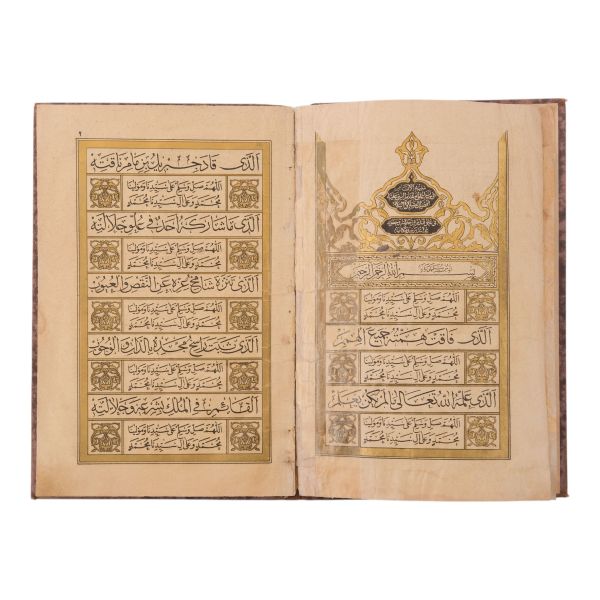 بسم الله الرحمن الرحيم
اللهم صل وسلم على سيدنا ومولانا
محمد وعلى آل سيدنا محمد
الذي فاقت همته جميع الهمم
اللهم صل وسلم على سيدنا ومولانا
محمد وعلى آل سيدنا محمد
الذي علمه الله تعالى ما لم يكن يعلم
اللهم صل وسلم على سيدنا ومولانا
محمد وعلى آل سيدنا محمد
٢
الذي قاد جبريل بزمام ناقته
اللهم صل وسلم على سيدنا ومولانا
محمد وعلى آل سيدنا محمد
الذي ما شاركه أحد في علو جلالته
اللهم صل وسلم على سيدنا ومولانا
محمد وعلى آل سيدنا محمد
الذي تنزه شامخ عزه عن النقص والعيوب
اللهم صل وسلم على سيدنا ومولانا
محمد وعلى آل سيدنا محمد
الذي ثبت مجده
اللهم صل وسلم على سيدنا ومولانا
محمد وعلى آل سيدنا محمد
القائم في الملك بشرعته وجلالته
اللهم صل وسلم على سيدنا ومولانا
محمد وعلى آل سيدنا محمد